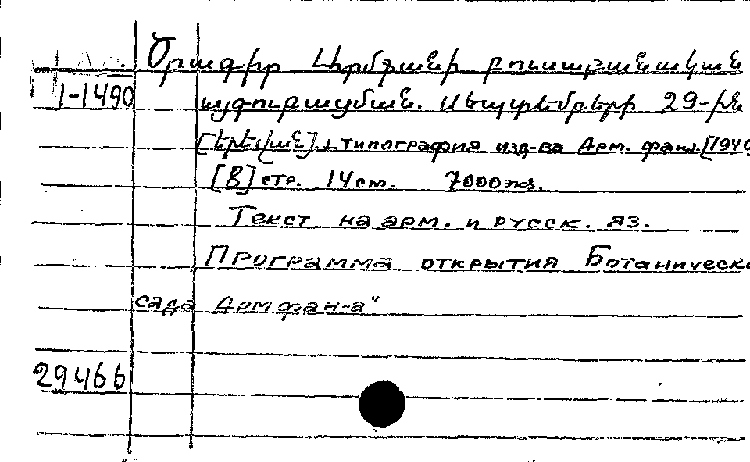 Ծրագիր Արմֆանի բուսաբանական
1-1490
այգու բացման. Սեպտեմբերի 29-ին
[Երևան], типография изд-ва Арм. фан. [1940
[8] стр. 14 см. 7000 экз.
Текст на арм. и русск. яз.
Программа открытия Ботаническо
сада Армфан-а"
29466